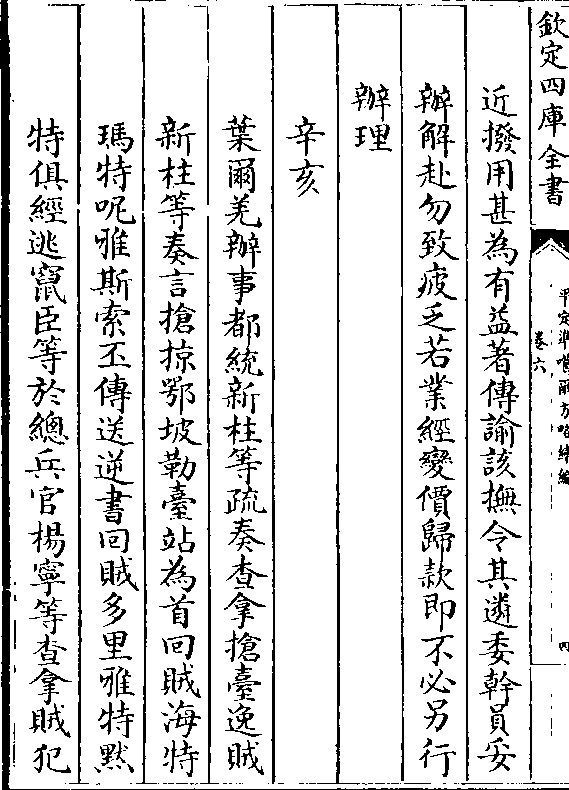 欽定四庫全書
平定準噶爾方略續編
卷六
四
近撥用甚為有益著傳諭該撫令其遴委幹員妥
辦解赴勿致疲乏若業經變價歸款即不必另行
辦理
辛亥
葉爾羌辦事都統新柱等疏奏查拿搶臺逸賊
新柱等奏言搶掠鄂坡勒臺站為首回賊海特
瑪特呢雅斯索丕傳送逆書回賊多里雅特黙
特俱經逃竄臣等於總兵官楊寧等查拿賊犯